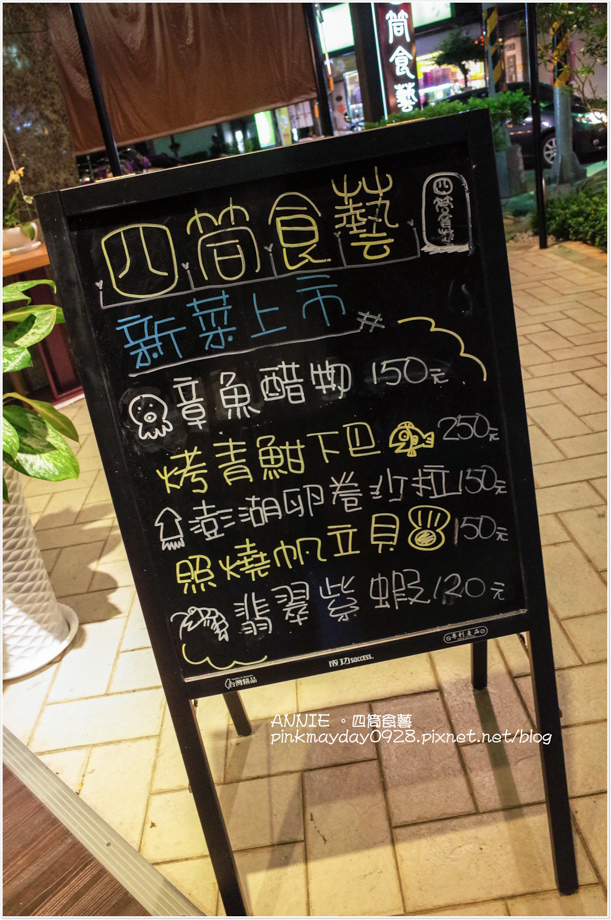 筒食藝
四筒食藝
四筒食藝
新菜上市
章魚醋物 150元
烤青魽下巴 250元
澎湖卵卷沙拉 150元
照燒帆立貝 150元
翡翠紫蝦 120元
台灣精品
成功 success.
專利產品
ANNIE 。四筒食藝
pinkmayday0928.pixnet.net/blog